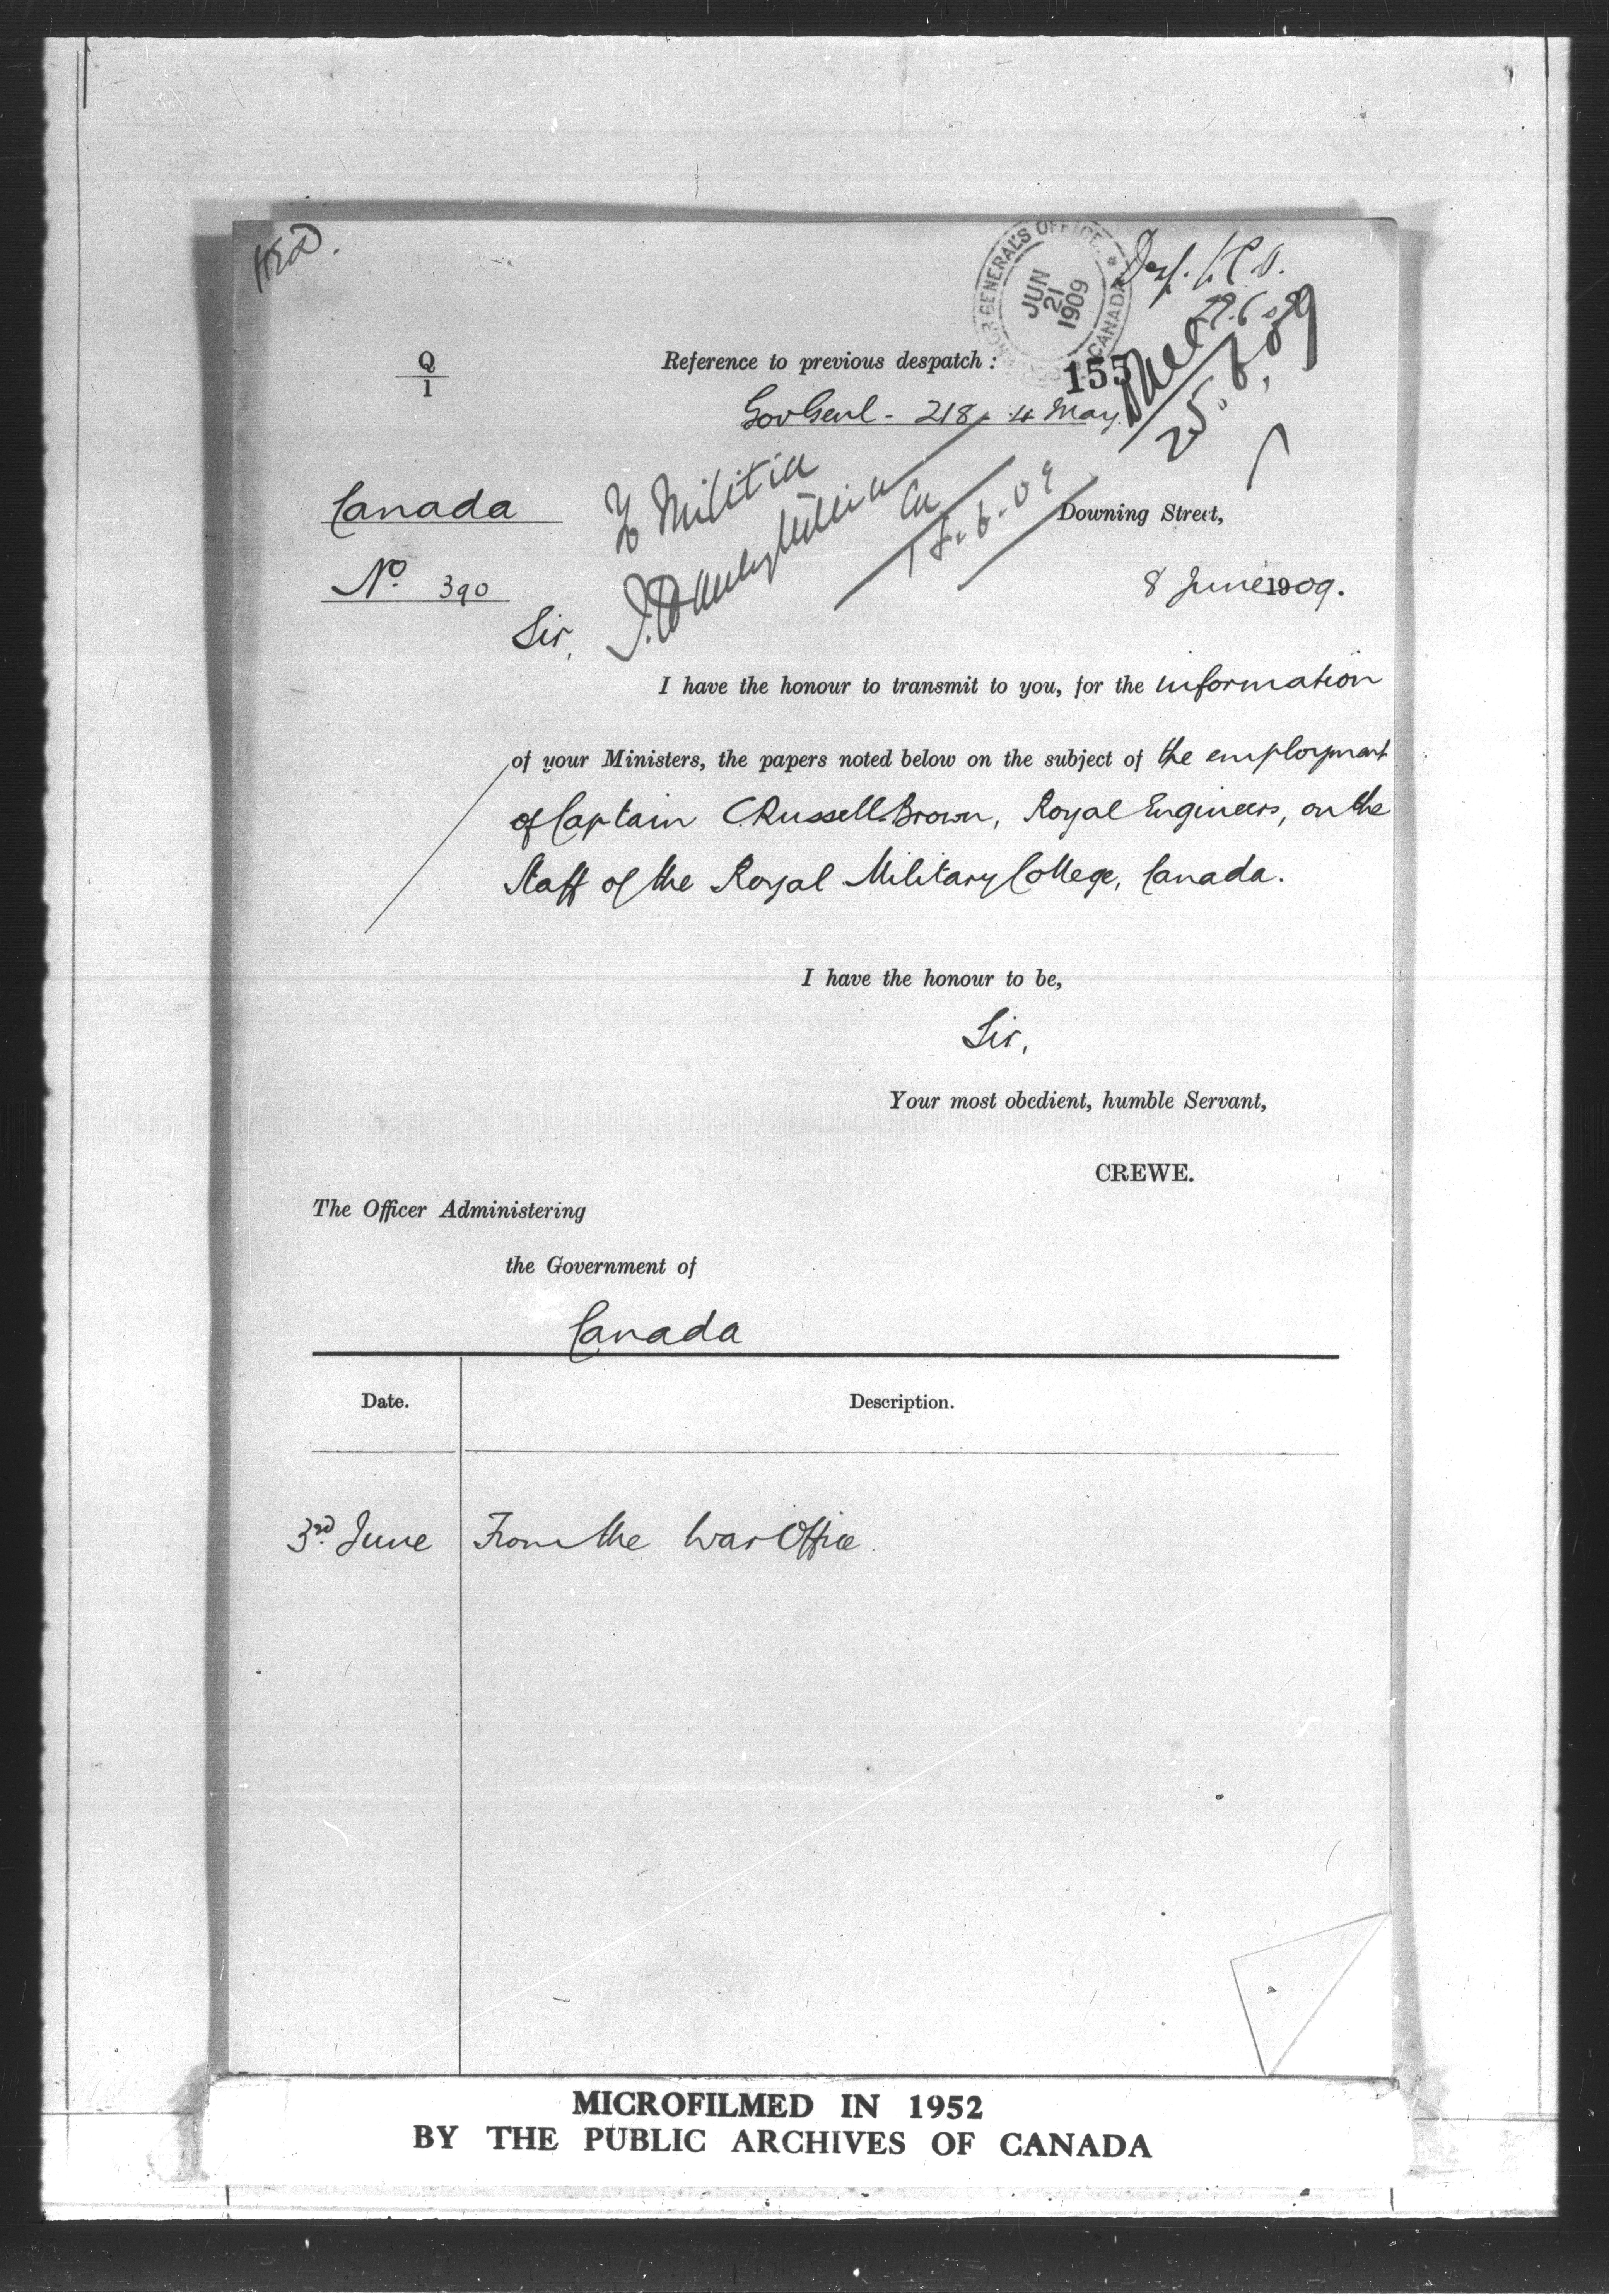 GENERAL'S OFFICE
CANADA
JUN
21
1909
Q
1
Reference to previous despatch:
155
Gov Genl - 218, 4 May.
25.6.09
To Militia
Canada
Downing Street,
No. 390
8 June 1909.
Sir,
I have the honour to transmit to you, for the information
of your Ministers, the papers noted below on the subject of the employment
of Captain C. Russell-Brown, Royal Engineers, on the
Staff of the Royal Military College, Canada.
I have the honour to be,
Sir,
Your most obedient, humble Servant,
CREWE.
The Officer Administering
the Government of
Canada
Date.
Description.
3rd June
From the War Office.
MICROFILMED IN 1952
BY THE PUBLIC ARCHIVES OF CANADA